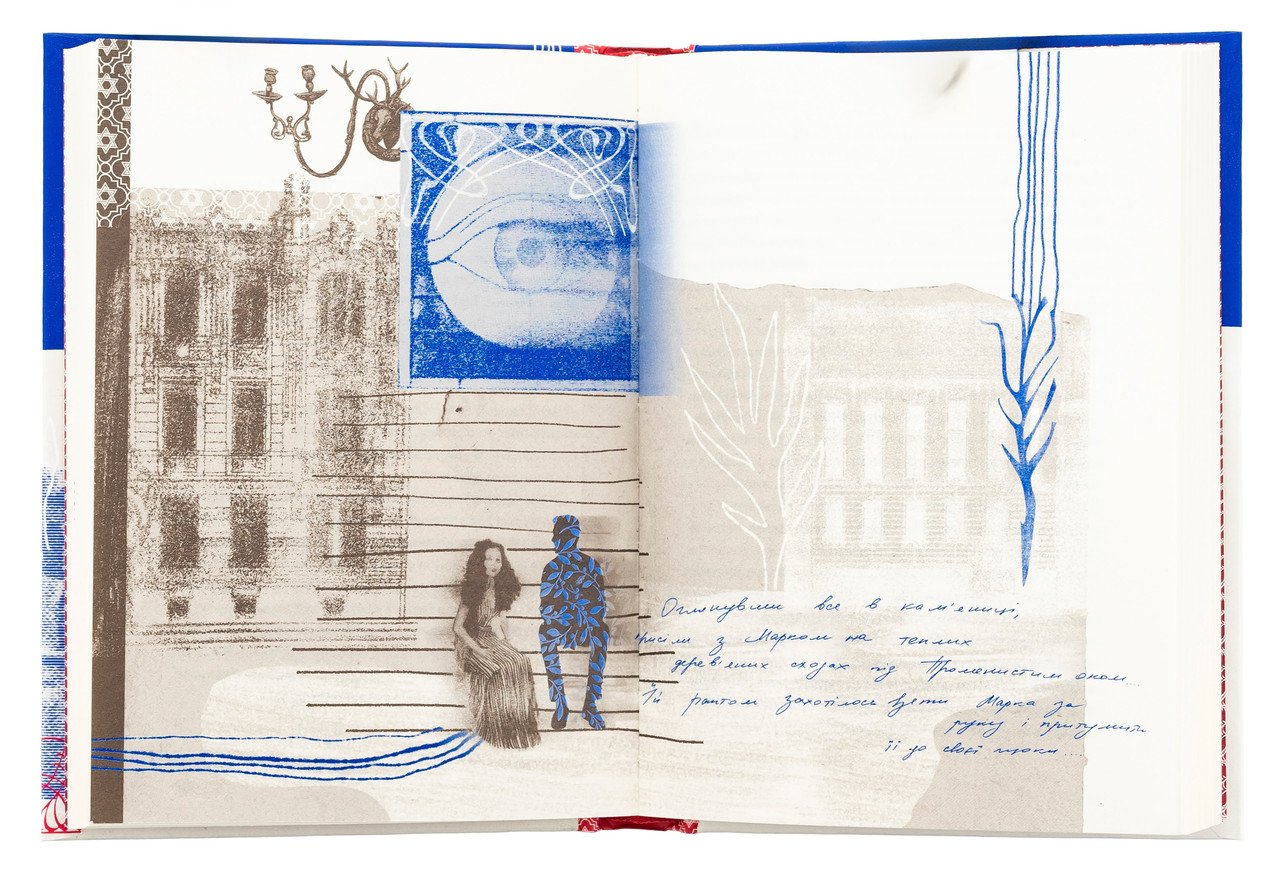 Оглянувши все в кам'яниці,
присіли з Марком на теплих
дерев'яних сходах під Променистим оком...
Їй раптом захотілося взяти Марка за
руку і притулити
її до своєї щоки...